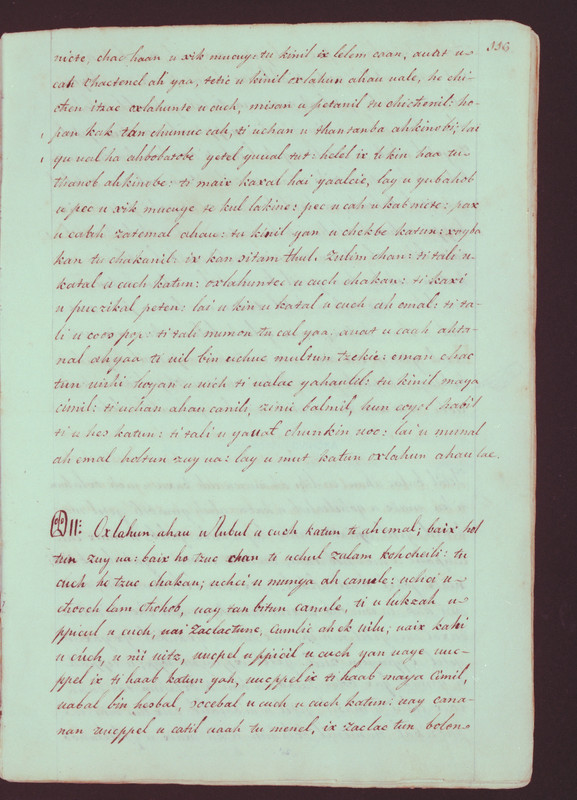 336
nicte, chac haan u xik mucuy: tu kinil ix lelem caan, auat u-
cah thactenel ah yaa, tetic u kinil oxlahun ahau uale, he chi-
chen itzae oxlahunte u cuch, misan u petanil tu chichonil: ho-
pan kak tan chumuc cah, ti uchan u than tanba ahkinobi; lai
yu ual ha ahbobatobe yetel yuual tut: helel ix te kin haa tu-
thanob ahkinobe: ti maix kaxal hai yaalcie, lay u yubahob
u pec u xik mucuye te kul lakine: pec u cah u kab nicte: pax
u cabah zatemal ahau: tu kinil yan u chekbe katun: xoyba
kan tu chakanil: ix kan sitam thul, zulim chan: ti tali u-
katal u cuch katun: oxlahunte u cuch chakan: ti kaxi
u puczikal peten: lai u kin u katal u cuch ah emal: ti ta-
li u coro pop: ti tali numon tu cal yaa, auat u cauh ahta-
nal ah yaa ti uil bin uchuc multun tzekie: eman chac
tun uichi hoyan u uich ti ualac yahaulil: tu kinil maya
cimil: ti uchan ahau canils, zinic balmil, hun coyol habil
ti u hes katun: ti tali u yauat chunkin uoc: lai u munal
ah emal holtun zuy ua: lay u mut katun oxlahun ahau lae.
11: Oxlahun ahau u lubul u cuch katun te ah emal; baix hol
tun zuy ua: baix ho tzuc chan te uchul zalam kohcheili: tu
cuch ho tzuc chakan; uchci u munya ah canule: uchci u-
choch lam chohob, uay tan bitun canule, ti u lukzah u-
ppicul u cuch, uai zaclactune, cumlic ah ek uilu; uaix kahi
u cuch, u nii uitz, uucpel uppicil u cuch yan uaye uuc-
ppel ix ti haab katun yah, uucppel ix ti haab maya cimil,
uabal bin hesbal, socebal u cuch u cuch katun: uay cana-
nan uucppel u catil uaah tu menel, ix zaclac tun bolon